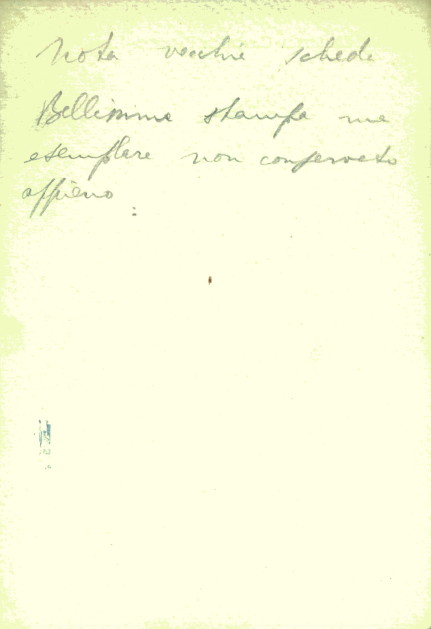 Nota vecchie schede
Bellissima stampa ma
esemplare non conservato
appieno